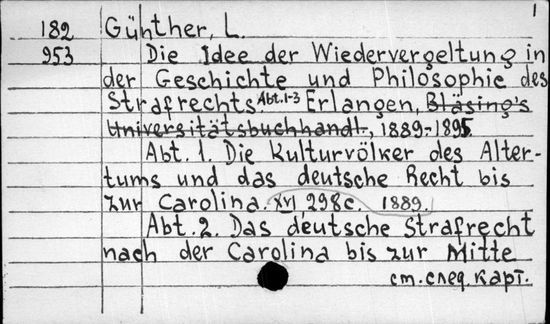 1
182 Günther, L.
953 Die Idee der Wiedervergeltung in
der Geschichte und Philosophie des
Strafrechts. Abt. 1-3 Erlangen, Bläsing's
Universitätsbuchhandl., 1889-1895
Abt. 1. Die Kulturvölker des Alter-
tums und das deutsche Recht bis
zur Carolina. XVI 298c. 1889.
Abt. 2. Das deutsche Strafrecht
nach der Carolina bis zur Mitte
см. след. карт.